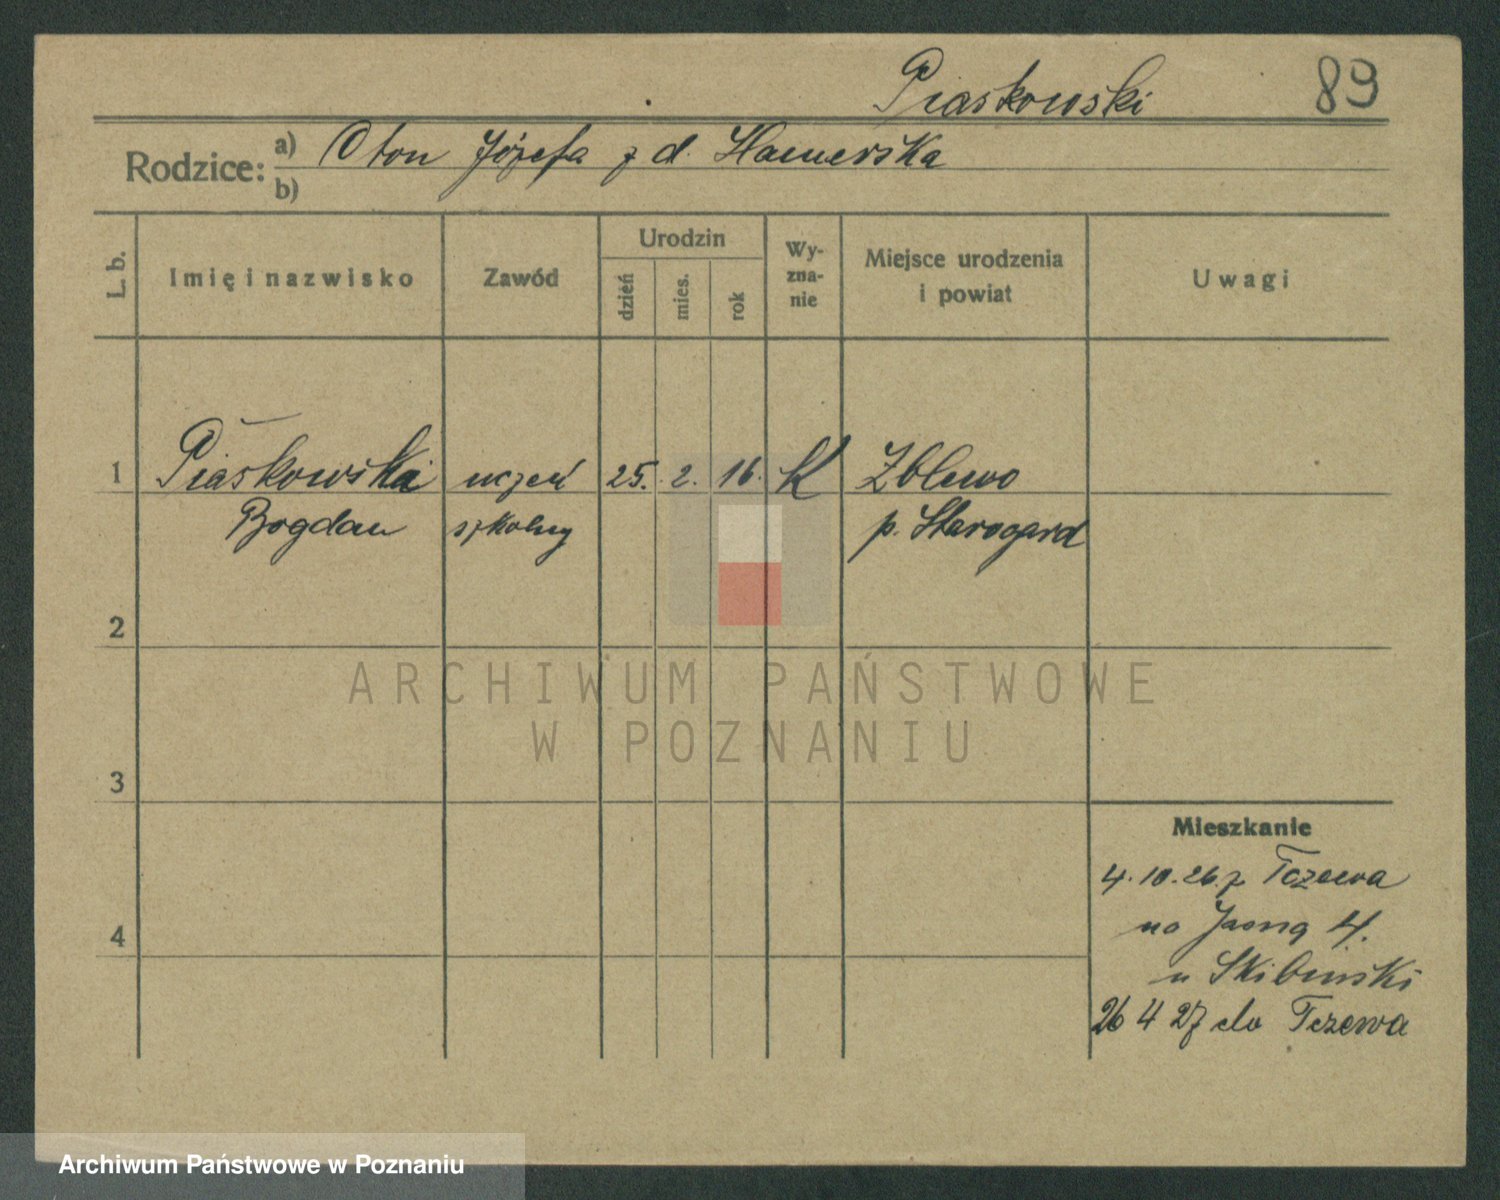 Piaskowski 89
Rodzice: a) Oton Józefa z d. Hamerska
b)
L. b. Imię i nazwisko Zawód Urodzin dzień mies. rok Wy-zna-nie Miejsce urodzenia i powiat Uwagi
1 Piaskowski uczeń 25. 2. 16. K Zblewo
Bogdan szkolny p. Starogard
2
ARCHIWUM PAŃSTWOWE
W POZNANIU
3
Mieszkanie
4. 10. 26. z Tczewa
na Jasną 4.
4
u Skibiński
26 4 27 do Tczewa
Archiwum Państwowe w Poznaniu